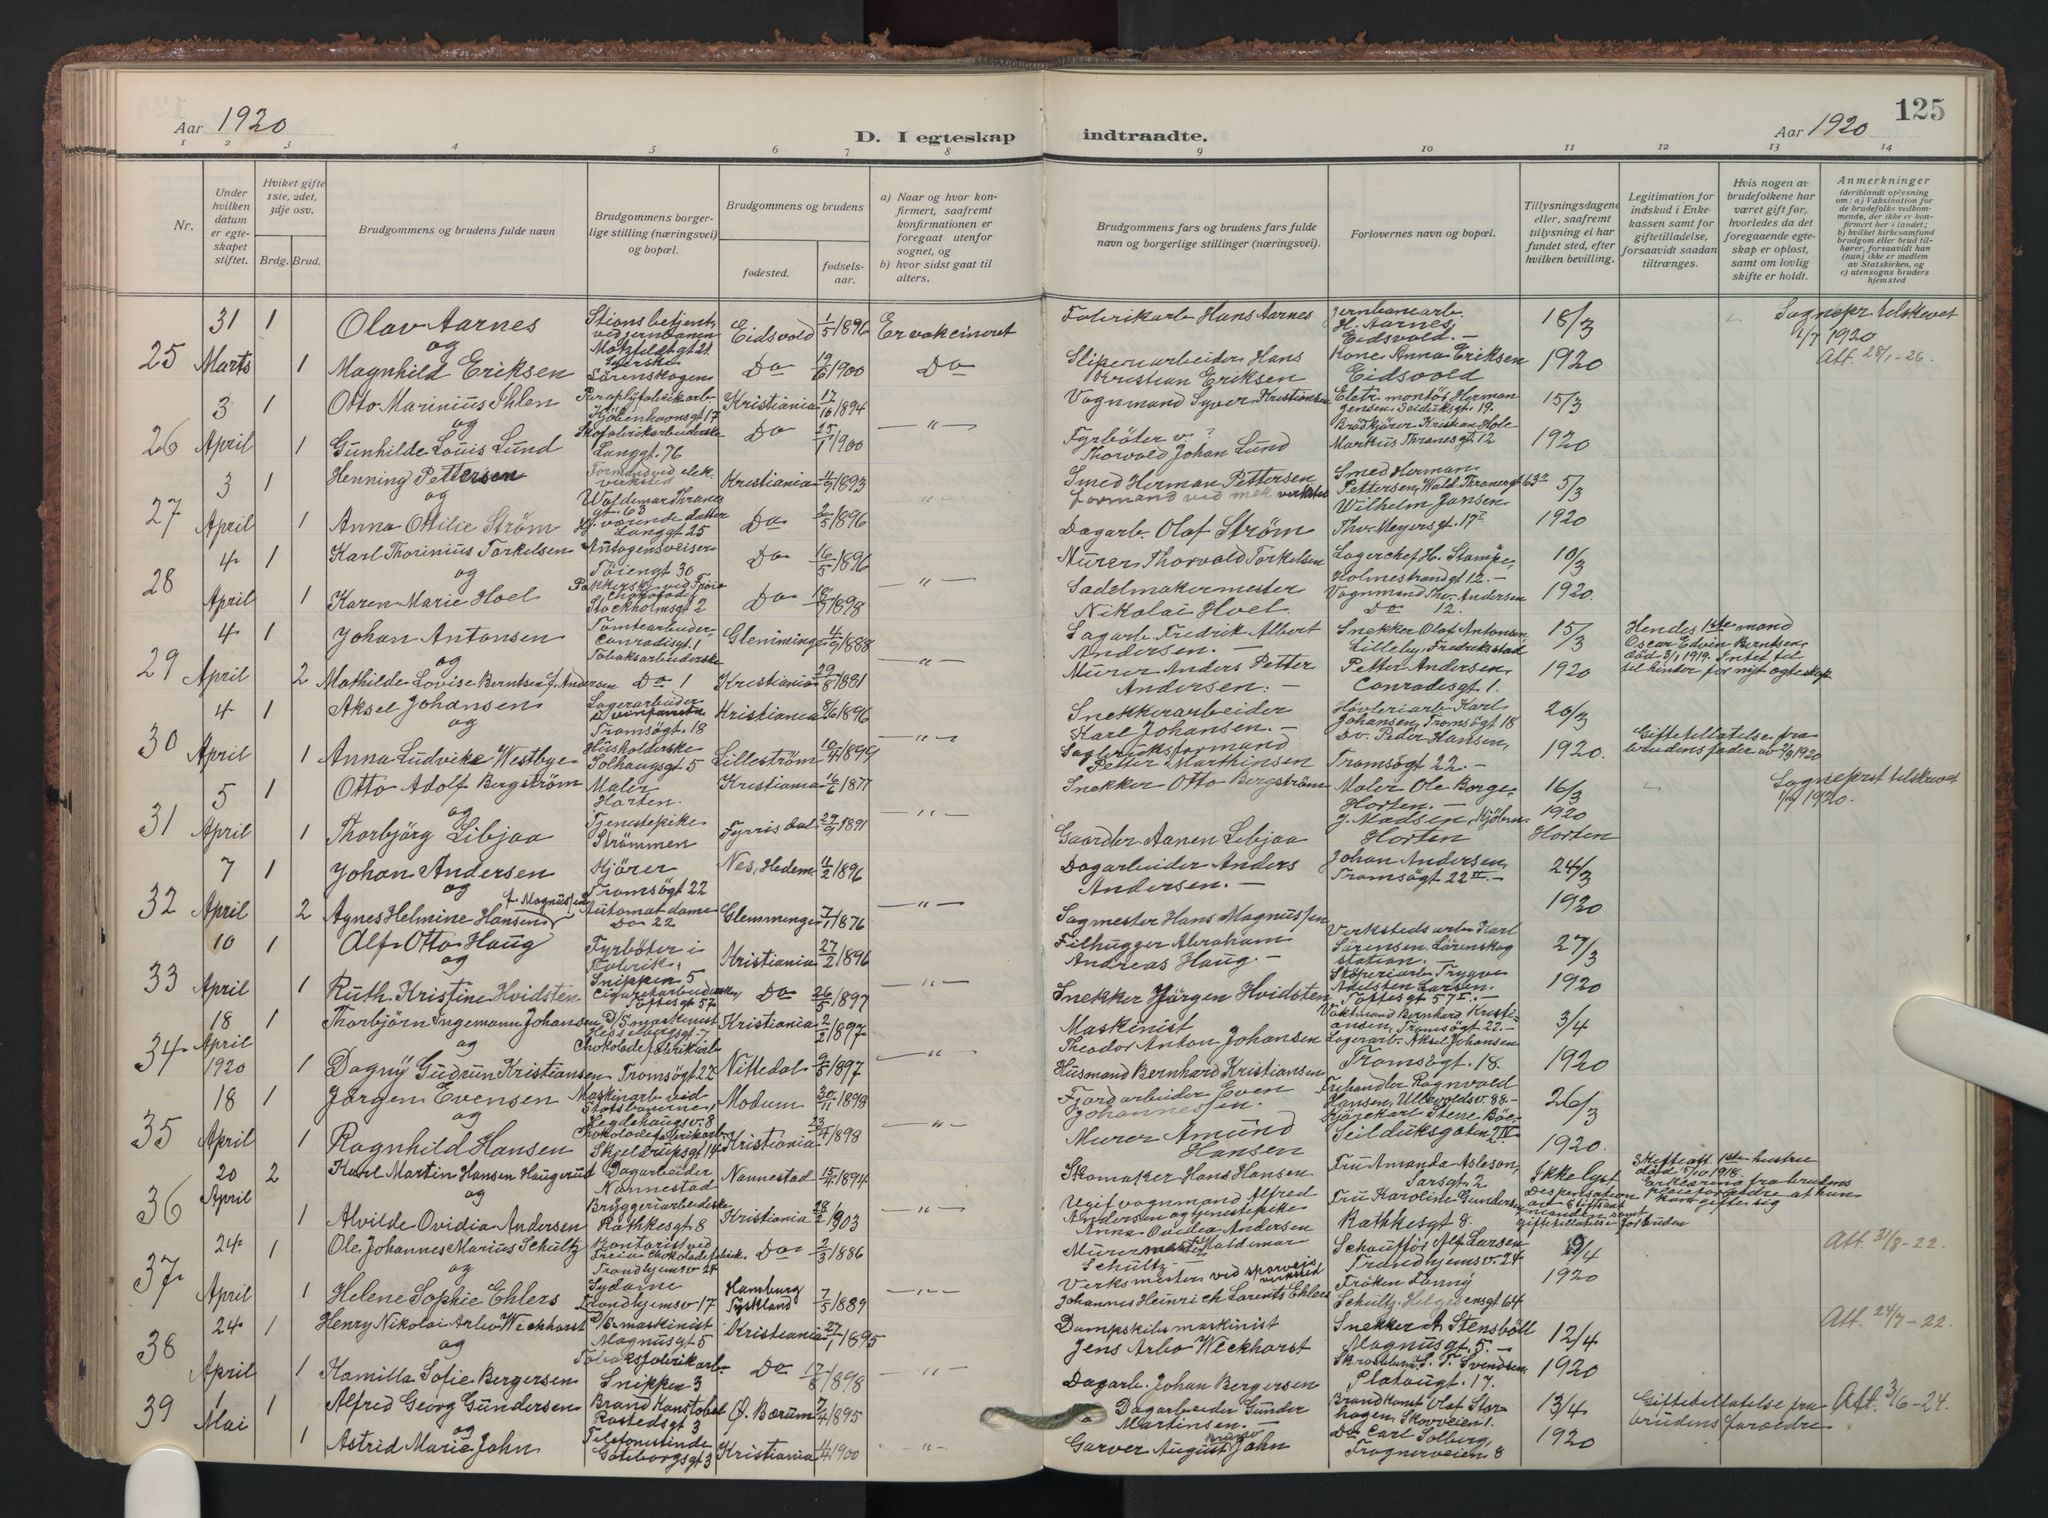 Aar 1920
D. I egteskap
indtraadte.
Aar 1920
125
1 2 3 4 5 6 7 8 9 10 11 12 13 14
Nr.
Under hvilken datum er egteskapet stiftet.
Hviket gifte 1ste, 2det, 3dje osv.
Brdg. Brud.
Brudgommens og brudens fulde navn
Brudgommens borgerlige stilling (næringsvei) og bopæl.
Brudgommens og brudens
fødested.
fødselsaar.
a) Naar og hvor konfirmert, saafremt konfirmationen er foregaat utenfor sognet, og
b) hvor sidst gaat til alters.
Brudgommens fars og brudens fars fulde navn og borgerlige stillinger (næringsvei).
Forlovernes navn og bopæl.
Tillysningsdagene eller, saafremt tillysning ei har fundet sted, efter hvilken bevilling.
Legitimation for indskud i Enkekassen samt for giftetilladelse, forsaavidt saadan tiltrænges.
Hvis nogen av brudefolkene har været gift før, hvorledes da det foregaaende egteskap er opløst, samt om lovlig skifte er holdt.
Anmerkninger
(deriblandt oplysning om: a) Vaksination for de brudefolks vedkommende, der ikke er konfirmert her i landet; b) hvilket kirkesamfund brudgom eller brud tilhører, forsaavidt han (hun) ikke er medlem av Statskirken, og c) utensogns bruders hjemsted
25 31 Marts 1 Olav Aarnes Eidsvold 1/5 1896 Er vakcineret
Fabrikarb. Hans Aarnes Jernbanearb. H. Aarnes Eidsvold. 18/3
og
1 Magnhild Eriksen Sörenskogen Do 19/6 1900 Do
Sliperiarbeider Hans Kristian Eriksen Kone Anna Eriksen Eidsvold 1920
1/7 1920
Att. 28/1-26.
26 3 April 1 Otto Marinius Ihlen Kjöbenhavnsgt 17 Kristiania 17/10 1894
Vognmand Syver Kristiansen Eletr. montör Herman Jensen, Seilduksgt. 19. 15/3
og
1 Gunhilde Louis Lund Skofabrikarbeiderske Langgt. 76 Do 25/1 1900
Fyrböter v. ? Thorvald Johan Lund Brödkjörer Kristian Hole Markus Thranesgt. 12 1920
27 3 April 1 Henning Pettersen Formand ved elek. virksted Waldemar Thranes gt. 63 Kristiania 4/9 1893
Smed Herman Pettersen Smed Herman Pettersen, Wald. Thranesgt 63 5/3
Formand ved mek. virksted
og
1 Anna Ottilie Ström Hj. værende datter Langgt 25 Do 2/5 1896
Dagarb. Olaf Ström Wilhelm Jansen Thv. Meyersgt. 17 1920
28 4 April 1 Karl Thorinius Torkelsen Autogensveiser Töiengt 30 Do 16/5 1896
Murer Thorvald Torkelsen Lagerchef H. Stampe, Holmestrandgt 12. 10/3
og
1 Karen Marie Hoel Pakkerske ved Freia Stockholmsgt 2 Do 1898
Sadelmakermester Nikolai Hoel. Vognmand Thv. Andersen Do 12. 1920.
29 4 April 1 Johan Antonsen Tomtearbeider, Conradisgt. 1 Glemminge 4/9 1888
Sagarb. Fredrik Albert Andersen. Snekker Olaf Antonsen Lilleby, Fredriksstad 15/3
og
2 Mathilde Lovise Berntsen f. Andersen Tobaksarbeiderske Do 1 Kristiania 29/8 1881
Murer Anders Petter Andersen. Petter Andersen, Conradisgt 1. 1920
Hendes 1ste mand Oscar Edvin Berntsen, död 3/1 1919. Intet til til hinder for nyt egteskap
30 4 April 1 Aksel Johansen Lagerarbeider Tromsögt. 18 Kristiania 8/6 1896
Snekkerarbeider Karl Johansen. Hövleriarb Karl Johansen, Tromsögt 18 20/3
og
1 Anna Ludvike Westbye Husholderske Solhaugsgt 5 Lilleström 10/4 1899
Sagbruksformand Petter Marthinsen Dv. Peder Hansen, Tromsögt 22. 1920.
Giftetillatelse fra brudens fader av 2/3 1920
31 5 April 1 Otto Adolf Bergström Maler Horten. Kristiania 16/6 1877
Snekker Otto Bergström Maler Ole Borge, Horten. 16/3
og
1 Thorbjörg Libjaa Tjenestepike Strömmen Fyrrisdal 29/9 1891
Gaarder Aanen Libjaa J. Madsen, Kjöbm. Horten 1920 Horten
1920.
32 7 April 1 Johan Andersen Kjörer Tromsögt 22 Nes, Hedem. 4/2 1896
Dagarbeider Anders Andersen. Johan Andersen, Tromsögt 22 III. 24/3
og
2 Agnes Helmine Hansen f. Magnussen Automatdame Do 22 Glemminge 7/1 1876
Sagmester Hans Magnussen 1920
33 10 April 1 Alf Otto Haug Fyrböter i Fabrik, Snippen 5 Kristiania 27/2 1896
Filhugger Abraham Andreas Haug. Verkstedsarb Karl Sörensen, Lörenskog station. 27/3
og
1 Ruth Kristine Hvidsten Toftesgt 57 Do 26/5 1897
Snekker Jörgen Hvidsten Stöperiarb. Trygve Adelsten Larsen, Toftesgt 57 I. 1920
34 18 April 1920 1 Thorbjörn Ingemann Johansen D/S maskinist Hesselbergsgt. 7 Kristiania 2/2 1897
Maskinist Theodor Anton Johansen Vaktmand Bernhard Kristiansen, Tromsögt 22. 3/4
og
1 Dagny Gudrun Kristiansen Chokoladefabrikarb Tromsögt 22 Nittedal 9/5 1897
Husmand Bernhard Kristiansen Lagerarb. Aksel Johansen Tromsögt. 18. 1920
35 18 April 1 Jörgen Evensen Maskinarb. ved Statsbanerne, Hegdehaugsv. 8 Modum 30/11 1898
Fjordarbeider Even Johannessen. Trehandler Ragnvald Hansen, Ullevoldsv. 88. 26/3
og
1 Ragnhild Hansen Chokoladefabrikarb. Skjeldrupsgt 14 Kristiania 23/4 1898
Murer Amund Hansen Kjörekarl Stene Böe, Seilduksgaten 2 IV 1920.
36 20 April 2 Karl Martin Hansen Haugerud Dagarbeider Nannestad Nannestad 15/4 1894
Skomaker Hans Hansen Fru Amanda Asleson, Sarsgt. 2 Ikke lyst
og
1 Alvilde Ovidia Andersen Bryggeriarbeiderske Rathkesgt 8 Kristiania 28/2 1903
Ugift vognmand Alfred Andersen og tjenestepike Anna Ovidia Andersen Fru Karoline Gundersen Rathkesgt 8. Despensation
Skifteatt. 1ste hustru död 5/10 1918. Erklæring fra brudens pleieforældre at hun kan gifte sig
37 24 April 1 Ole Johannes Marius Schultz Kontorist ved Freia chokoladefabrik. Trondhjemsv 24 Do 2/3 1886
Murermester Waldemar Schultz Schaufför Alf Larsen Trondhjemsv. 24 9/4
og
1 Helene Sophie Ehlers Sydame Trondhjemsv 17 Hamburg Tyskland 7/5 1889
Verksmester ved sporveis virksted Johannes Heinrich Lorents Ehlers Fröken Fanny Schultz. Helgesensgt 64 1920
Att. 31/8-22.
38 24 April 1 Henry Nikolai Arbo Weckhorst D/S maskinist Magnusgt 5 Kristiania 27/1 1895
Dampskibsmaskinist Jens Arbo Weckhorst Snekker A Stensböll Magnusgt 5. 12/4
og
1 Kamilla Sofie Bergersen Tobaksfabrikarb. Snippen 3 Do 17/8 1898
Dagarb. Johan Bergersen S. T. Svendsen Platougt. 17. 1920
Att. 24/7-22.
39 1 Mai 1 Alfred Georg Gundersen Brandkonstabel Rostedsgt 3 Ø. Bærum 7/4 1895
Dagarbeider Gunder Martinsen. Brandkonst Olaf Storhagen, Skovveien 1. 13/4
og
1 Astrid Marie John Telefonistinde Göteborgsgt 3 Kristiania 4/4 1900
Garver August Bruno John Do Carl Solberg, Frognerveien 8 1920
Giftetillatelse fra brudens forældre
Att. 3/6-24.